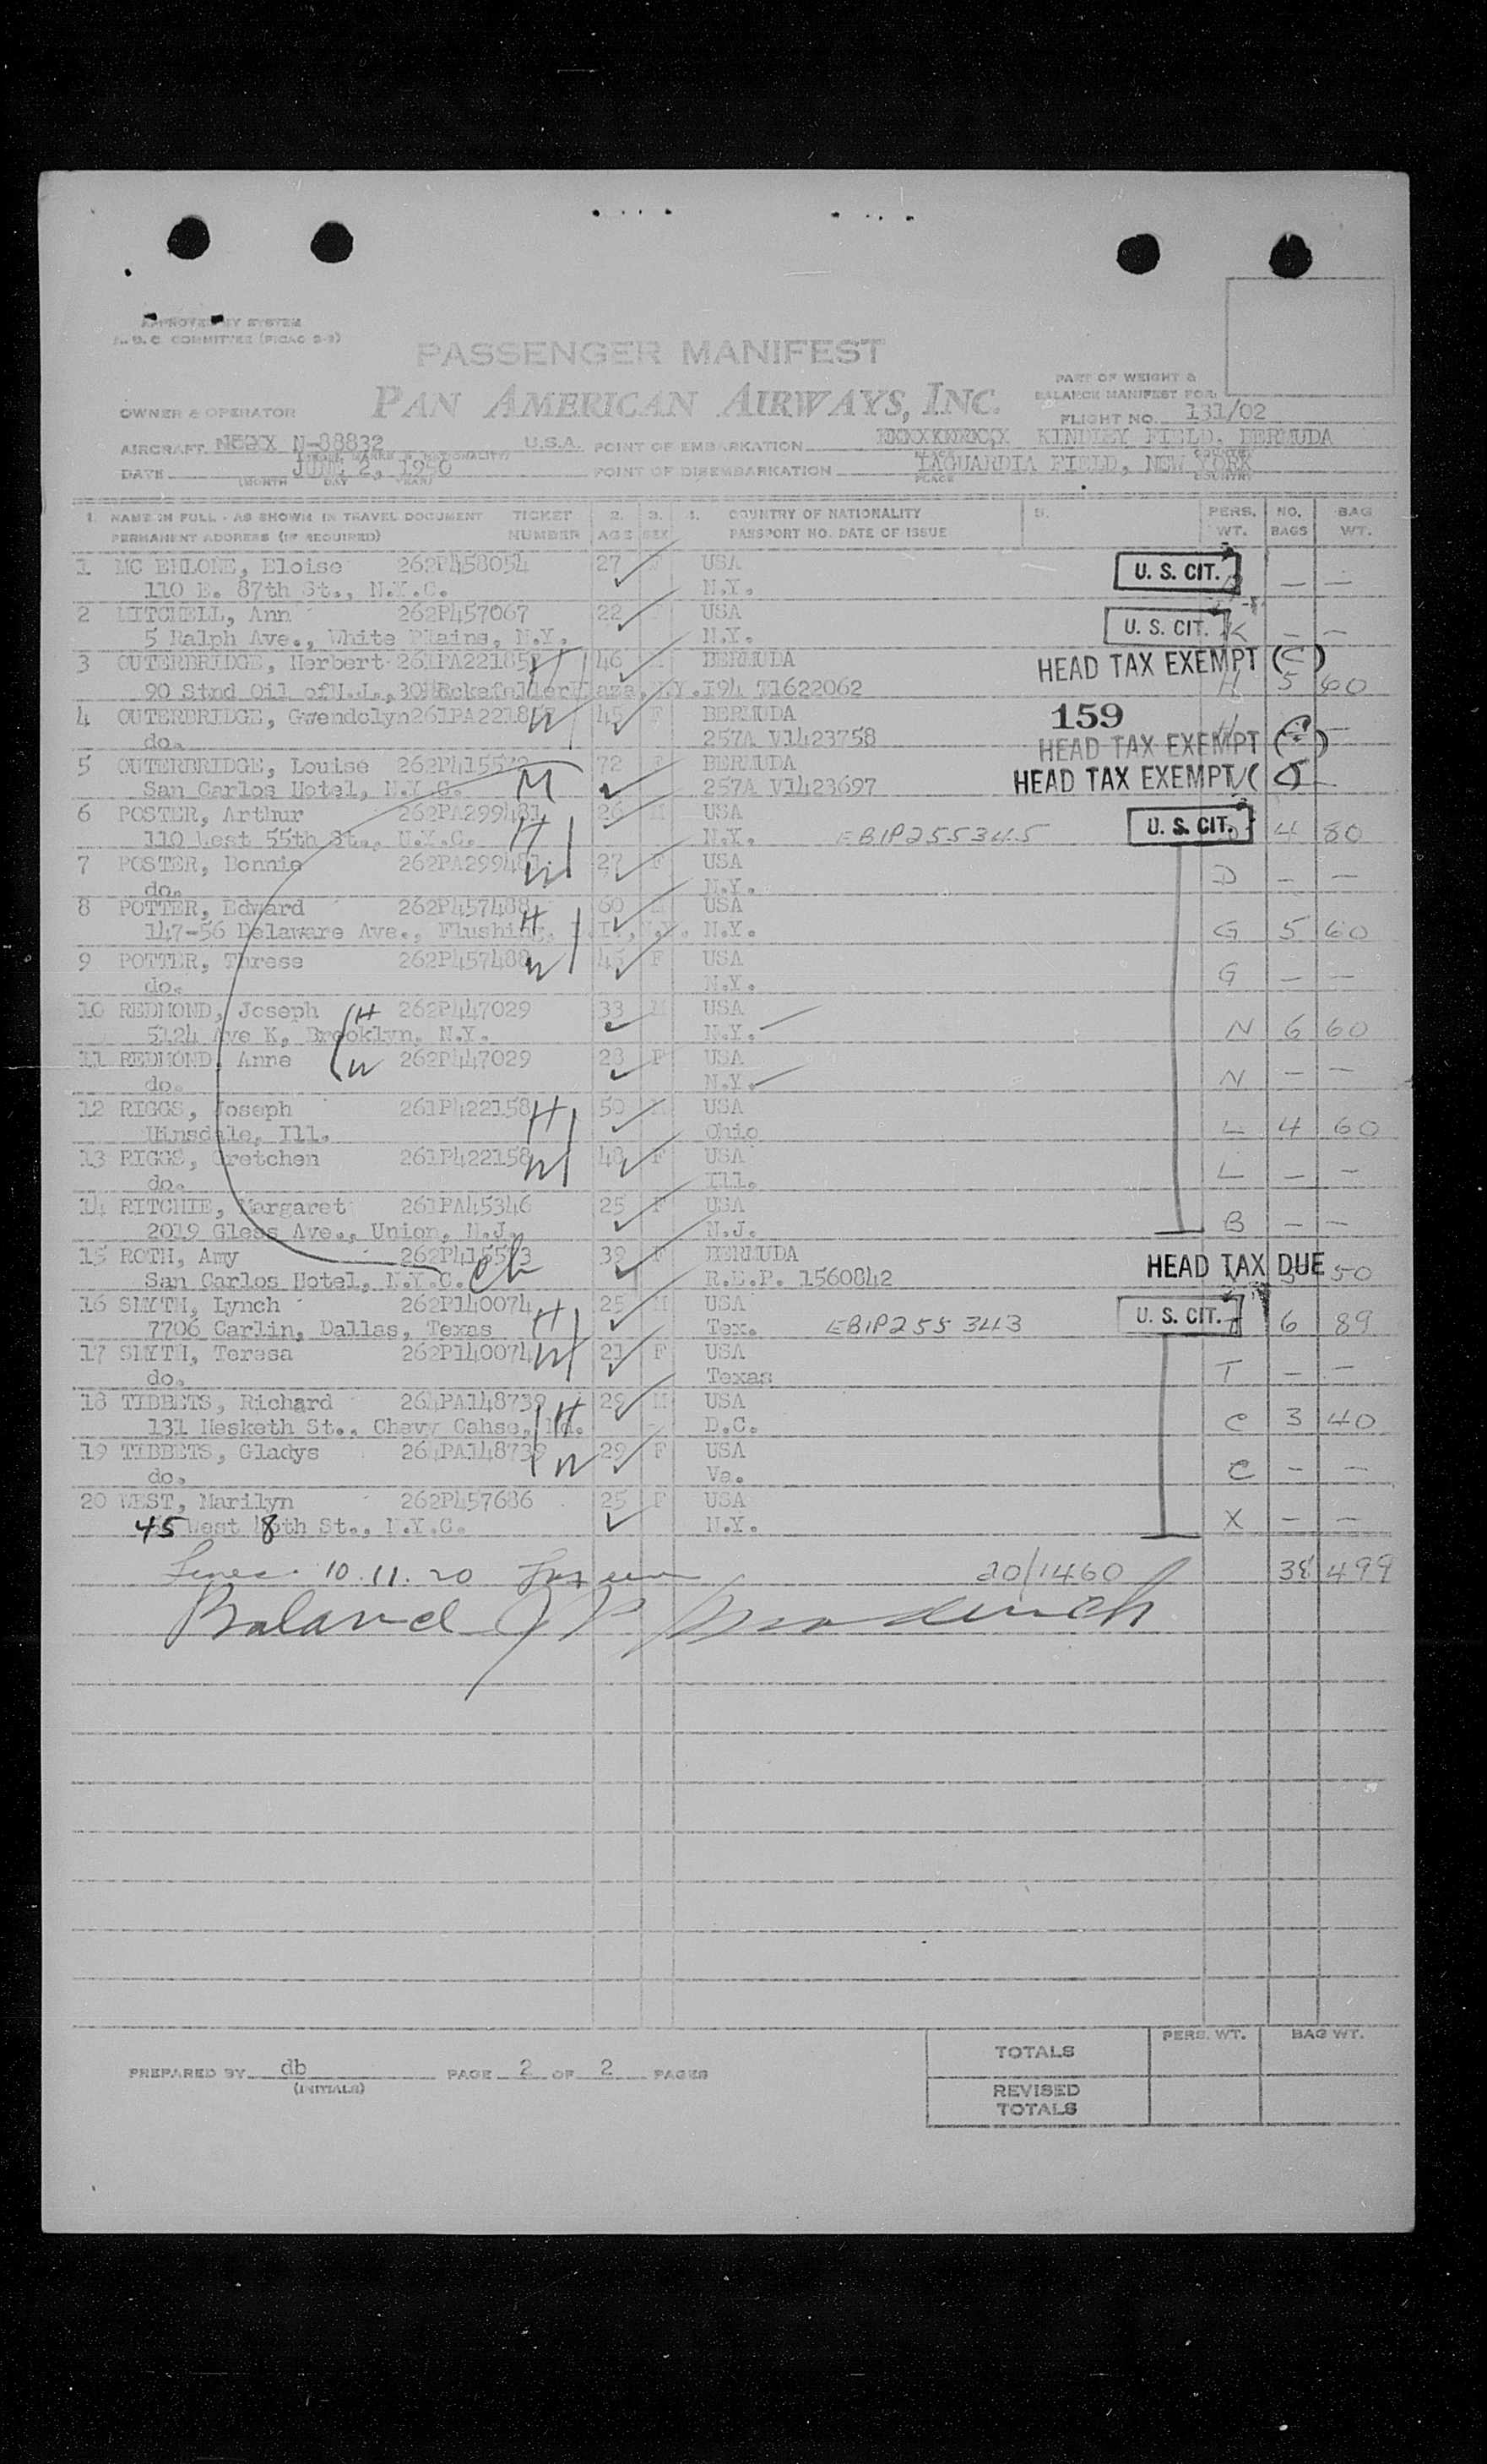 APPROVED BY SYSTEM
COMMITTEE (PICAO 2-9)
PASSENGER MANIFEST
PAN AMERICAN AIRWAYS, INC.
PART OF WEIGHT &
BALANCE MANIFEST FOR:
OWNER & OPERATOR
FLIGHT NO. 131/02
AIRCRAFT N-88832 U.S.A. POINT OF EMBARKATION KINDLEY FIELD, BERMUDA
DATE JUNE 2, 1950 POINT OF DISEMBARKATION LAGUARDIA FIELD, NEW YORK
(MONTH DAY YEAR) PLACE COUNTRY
1. NAME IN FULL - AS SHOWN IN TRAVEL DOCUMENT TICKET 2. 3. 4. COUNTRY OF NATIONALITY 5. PERS. NO. BAG
PERMANENT ADDRESS (IF REQUIRED) NUMBER AGE SEX PASSPORT NO. DATE OF ISSUE WT. BAGS WT.
1 Eloise 262P458054 27 F USA U. S. CIT.
110 E. 87th St., N.Y.C. N.Y. — —
2 MITCHELL, Ann 262P457067 22 USA
5 Ralph Ave., White Plains, N.Y. N.Y. U. S. CIT. K — —
3 OUTERBRIDGE, Herbert 46 BERMUDA HEAD TAX EXEMPT (C)
90 Stnd Oil of N.J., 30 Rockefeller Plaza, N.Y. I94 T1622062 H 5 60
4 OUTERBRIDGE, Gwendolyn W 45 F BERMUDA 159
do. 257A V1423758 HEAD TAX EXEMPT
5 OUTERBRIDGE, Louise 72 F BERMUDA
San Carlos Hotel, N.Y.C. M 257A V1423697 HEAD TAX EXEMPT
6 POSTER, Arthur 262PA299481 26 M USA
110 West 55th St., N.Y.C. H N.Y. EBIP255345 U. S. CIT. D 4 80
7 POSTER, Bonnie 262PA299481 W 27 F USA
do. N.Y. D — —
8 POTTER, Edward 262P457488 H 60 M USA
147-56 Delaware Ave., Flushing, L.I., N.Y. N.Y. G 5 60
9 POTTER, Threse 262P457488 W 45 F USA
do. N.Y. G — —
10 REDMOND, Joseph H 262P447029 33 M USA
5124 Ave K, Brooklyn, N.Y. N.Y. N 6 60
11 REDMOND, Anne W 262P447029 28 F USA
do. N.Y. N — —
12 RIGGS, Joseph 261P422158 H 50 M USA
Hinsdale, Ill. Ohio L 4 60
13 RIGGS, Gretchen 261P422158 W 48 F USA
do. Ill. L — —
14 RITCHIE, Margaret 261PA45346 25 F USA
2019 Ave., Union, N.J. N.J. B — —
15 ROTH, Amy 39 F BERMUDA HEAD TAX DUE
San Carlos Hotel, N.Y.C. Ch R.E.P. 1560842 50
16 SMYTH, Lynch 262P140074 H 25 M USA
7706 Carlin, Dallas, Texas Tex. EBIP255343 U. S. CIT. T 6 89
17 SMYTH, Teresa 262P140074 W 21 F USA
do. Texas T — —
18 TIBBETS, Richard 261PA148739 H 29 M USA
131 Hesketh St., Chevy Cahse, Md. D.C. C 3 40
19 TIBBETS, Gladys 261PA148739 W 29 F USA
do. Va. C — —
20 WEST, Marilyn 262P457686 25 F USA
45 West 8th St., N.Y.C. N.Y. X — —
10.11.20 20/1460 38 499
TOTALS PERS. WT. BAG WT.
PREPARED BY db PAGE 2 OF 2 PAGES
(INITIALS)
REVISED
TOTALS